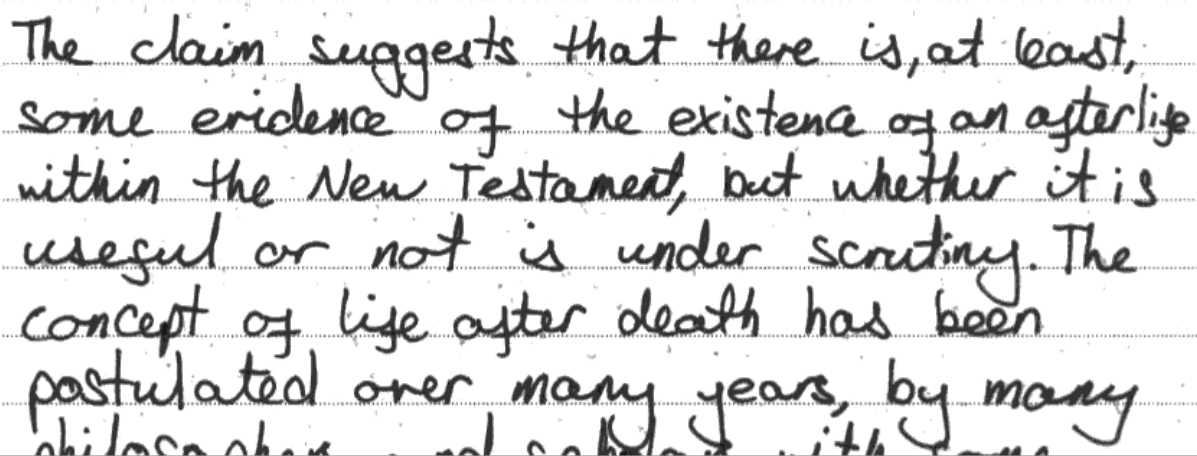 The claim suggests that there is, at least,
some evidence of the existence of an afterlife
within the New Testament, but whether it is
useful or not is under scrutiny. The
concept of life after death has been
postulated over many years, by many